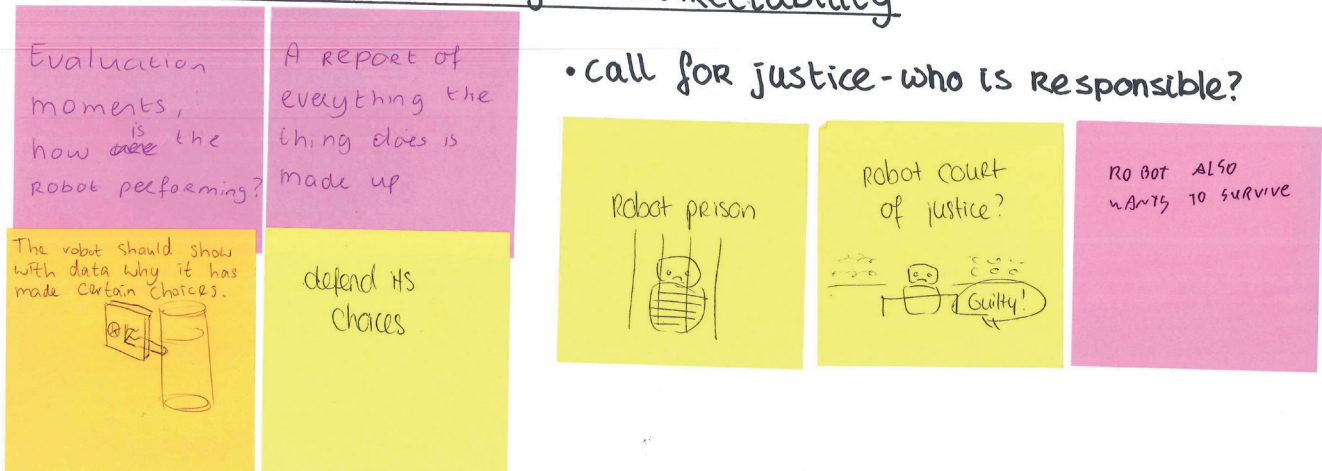 Evaluation
moments,
how is the
Robot performing?
A Report of
everything the
thing does is
made up
The robot should show
with data why it has
made certain choices.
defend its
choices
• call for justice - who is Responsible?
Robot prison
Robot court
of justice?
Guilty!
ROBOT ALSO
WANTS TO SURVIVE